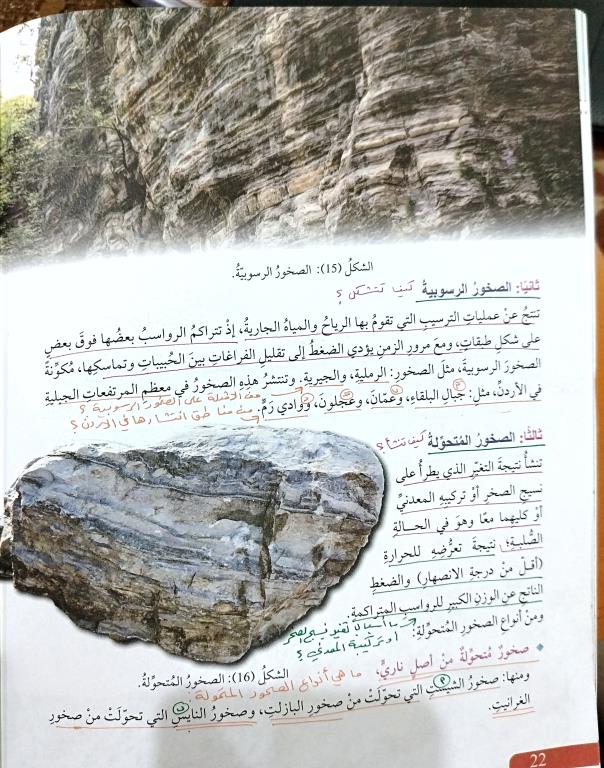 الشكلُ (15): الصخورُ الرسوبيّةُ.
ثانيًا: الصخورُ الرسوبيةُ كيف تتشكل ؟
تنتجُ عنْ عملياتِ الترسيبِ التي تقومُ بها الرياحُ والمياهُ الجاريةُ، إذْ تتراكمُ الرواسبُ بعضُها فوقَ بعضٍ
على شكلِ طبقاتٍ، ومعَ مرورِ الزمنِ يؤدي الضغطُ إلى تقليلِ الفراغاتِ بينَ الحُبيباتِ وتماسكِها، مُكوِّنةً
الصخورَ الرسوبيةَ، مثلَ الصخورِ: الرمليةِ، والجيريةِ. وتنتشرُ هذهِ الصخورُ في معظمِ المرتفعاتِ الجبليةِ
في الأردنِّ، مثل: جبالِ البلقاءِ، وعمّانَ، وعجلونَ، ووادي رَمٍّ.
من الأمثلة على الصخور الرسوبية ؟
من مناطق انتشارها في الأردن ؟
ثالثًا: الصخورُ المُتحوّلةُ كيف تنشأ ؟
تنشأُ نتيجةَ التغيّرِ الذي يطرأُ على
نسيجِ الصخرِ أوْ تركيبِهِ المعدنيِّ
أوْ كليهِما معًا وهوَ في الحالةِ
الصُّلبةِ؛ نتيجةَ تعرُّضِهِ للحرارةِ
(أقلَّ منْ درجةِ الانصهارِ) والضغطِ
الناتجِ عنِ الوزنِ الكبيرِ للرواسبِ المتراكمةِ.
ومنْ أنواعِ الصخورِ المُتحوّلةِ:
ما أسباب تغير نسيج الصخر
أو تركيبة المعدني ؟
صخورٌ مُتحوّلةٌ منْ أصلٍ ناريٍّ، ما هي أنواع الصخور المتحولة
الشكلُ (16): الصخورُ المُتحوّلةُ.
ومنها: صخورُ الشيستِ التي تحوّلَتْ منْ صخورِ البازلتِ، وصخورُ النايسِ التي تحوّلَتْ منْ صخورِ
الغرانيتِ.
22